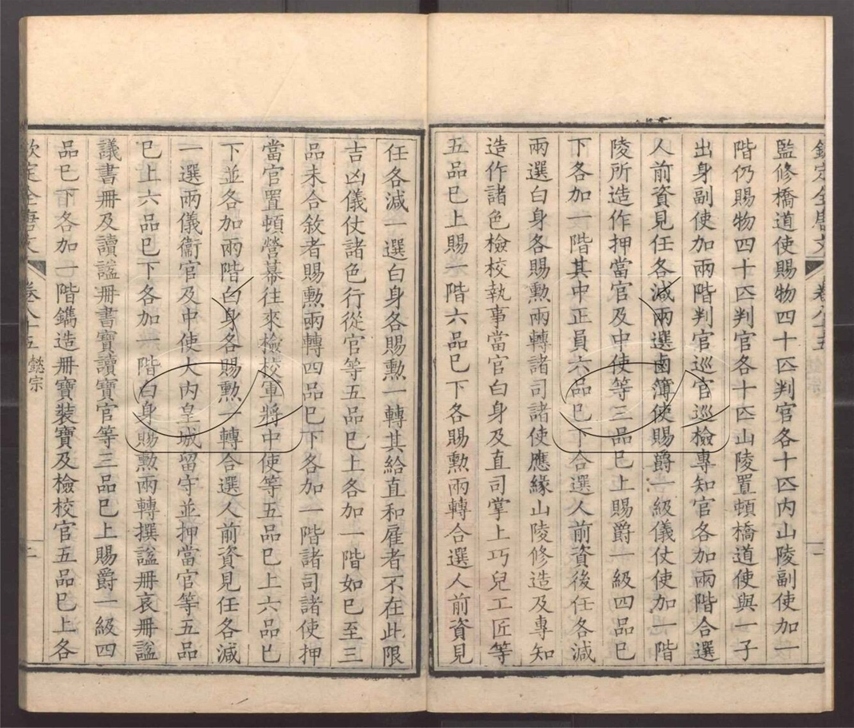 欽定全唐文 卷八十五 一
監修橋道使賜物四十匹判官各十匹内山陵副使加一
階仍賜物四十匹判官各十匹山陵置頓橋道使與一子
出身副使加兩階判官巡官巡檢專知官各加兩階合選
人前資見任各減兩選鹵簿使賜爵一級儀仗使加一階
陵所造作押當官及中使等三品已上賜爵一級四品已
下各加一階其中正員六品已下合選人前資後任各減
兩選白身各賜勲兩轉諸司諸使應緣山陵修造及專知
造作諸色檢校執事當官白身及直司掌上巧兒工匠等
五品已上賜一階六品已下各賜勲兩轉合選人前資見
任各減一選白身各賜勲一轉其給直和雇者不在此限
吉凶儀仗諸色行從官等五品已上各加一階如已至三
品未合敘者賜勲兩轉四品已下各加一階諸司諸使押
當官置頓營幕往來檢校軍將中使等五品已上六品已
下並各加兩階白身各賜勲一轉合選人前資見任各減
一選兩儀衞官及中使大内皇城留守並押當官等五品
已上六品已下各加一階白身賜勲兩轉撰諡册哀册諡
議書册及讀諡册書寶讀寶官等三品已上賜爵一級四
品已下各加一階鐫造册寶裝寶及檢校官五品已上各
欽定全唐文 卷八十五 懿宗 二